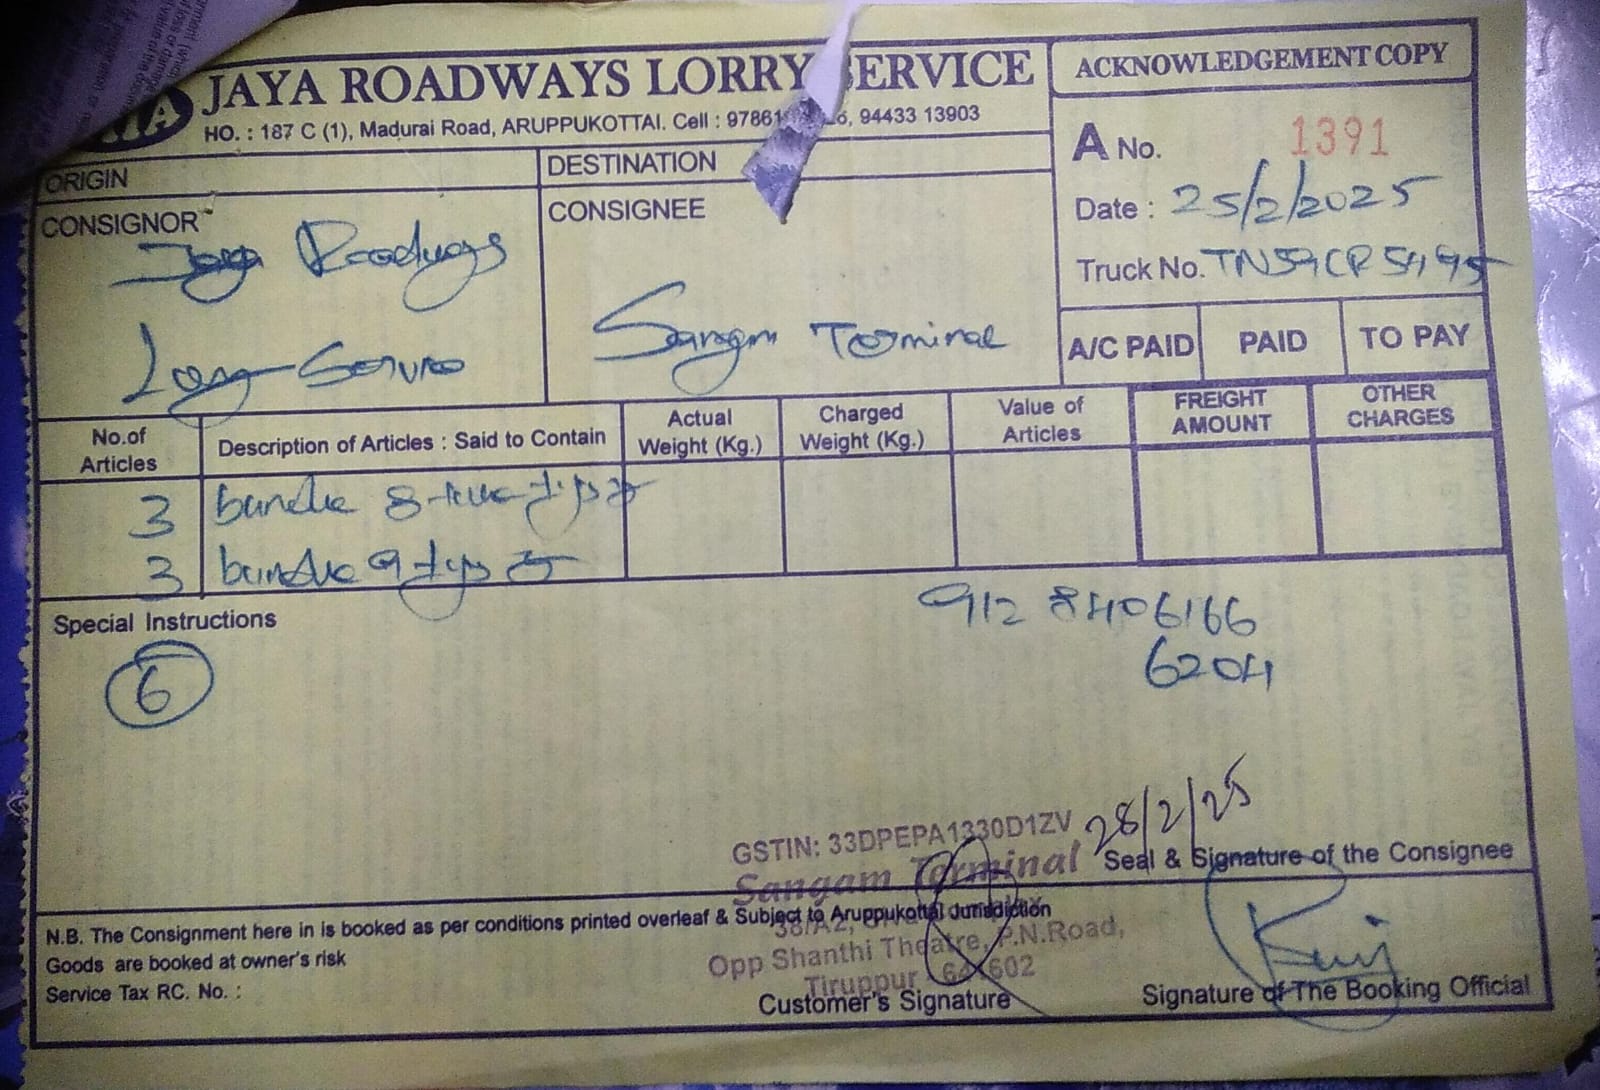 JAYA ROADWAYS LORRY SERVICE
HO. : 187 C (1), Madurai Road, ARUPPUKOTTAI. Cell : 97861 6, 94433 13903
ACKNOWLEDGEMENT COPY
A No. 1391
Date : 25/2/2025
Truck No. TN59CR5495
ORIGIN
DESTINATION
CONSIGNOR
Jaya Roadways
CONSIGNEE
Sangam Terminal
A/C PAID PAID TO PAY
No.of Articles
Description of Articles : Said to Contain
Actual Weight (Kg.)
Charged Weight (Kg.)
Value of Articles
FREIGHT AMOUNT
OTHER CHARGES
3 bundle 8
3 bundle 9
Special Instructions
6
912 8406166
6204
28/2/25
GSTIN: 33DPEPA1330D1ZV
Sangam Terminal
Seal & Signature of the Consignee
N.B. The Consignment here in is booked as per conditions printed overleaf & Subject to Aruppukottai Jurisdiction
38/A2,
Goods are booked at owner's risk
Opp Shanthi Theatre, P.N.Road,
Service Tax RC. No. :
Tiruppur 641602
Customer's Signature
Signature of The Booking Official